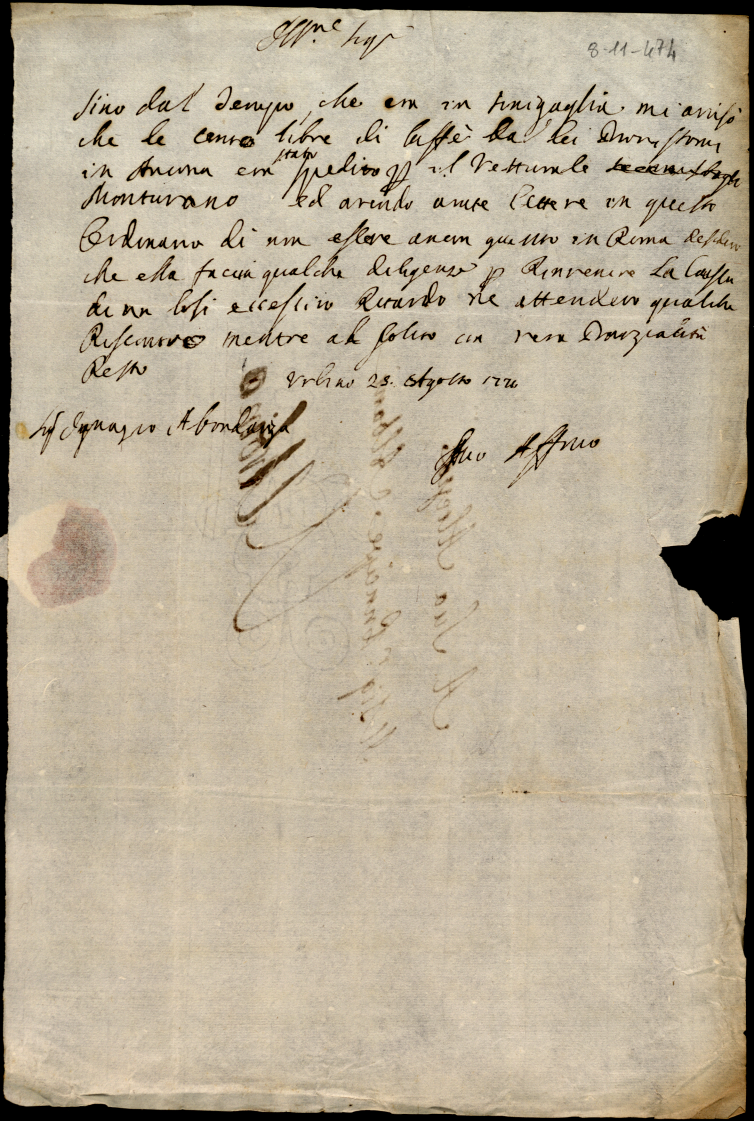 Ill.mo Sig.r
8-11-474
Sino dal tempo, che era in Sinigaglia mi avisò
che le cento libre di Caffè da lei
in Ancona era stato spedito p il Vetturale
Monturano ed avendo avute lettere in questo
Ordinario di non essere ancor giunto in Roma desidero
che ella faccia qualche diligenza p Rinvenire La Causa
di un così eccessivo Ritardo ne attenderò qualche
Riscontro mentre al solito con vera Parzialità
Resto
Urbino 23. Agosto
Sig Ignazio Abondanza
Suo Aff.mo